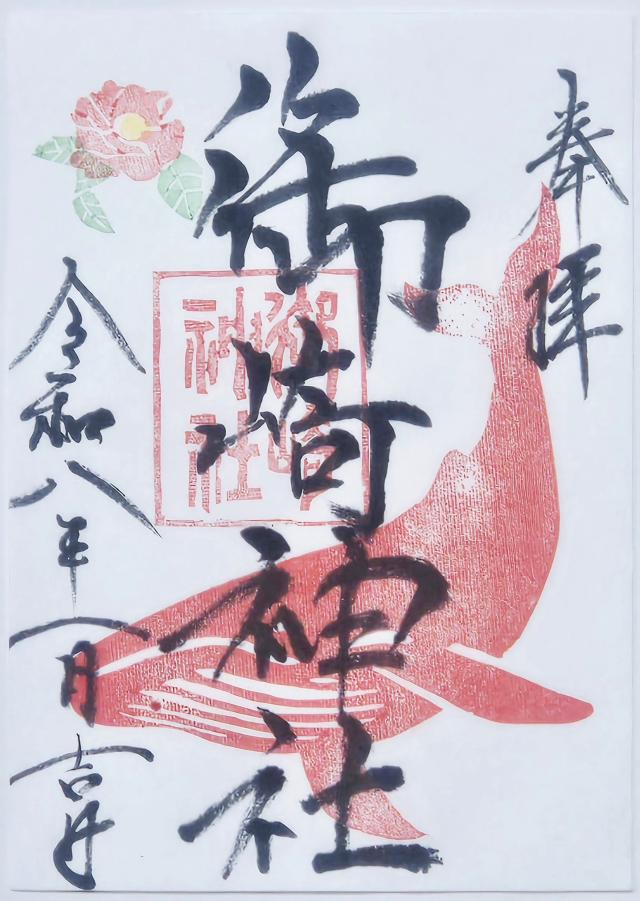 奉拝
御崎神社
御崎
神社
令和八年一月吉日